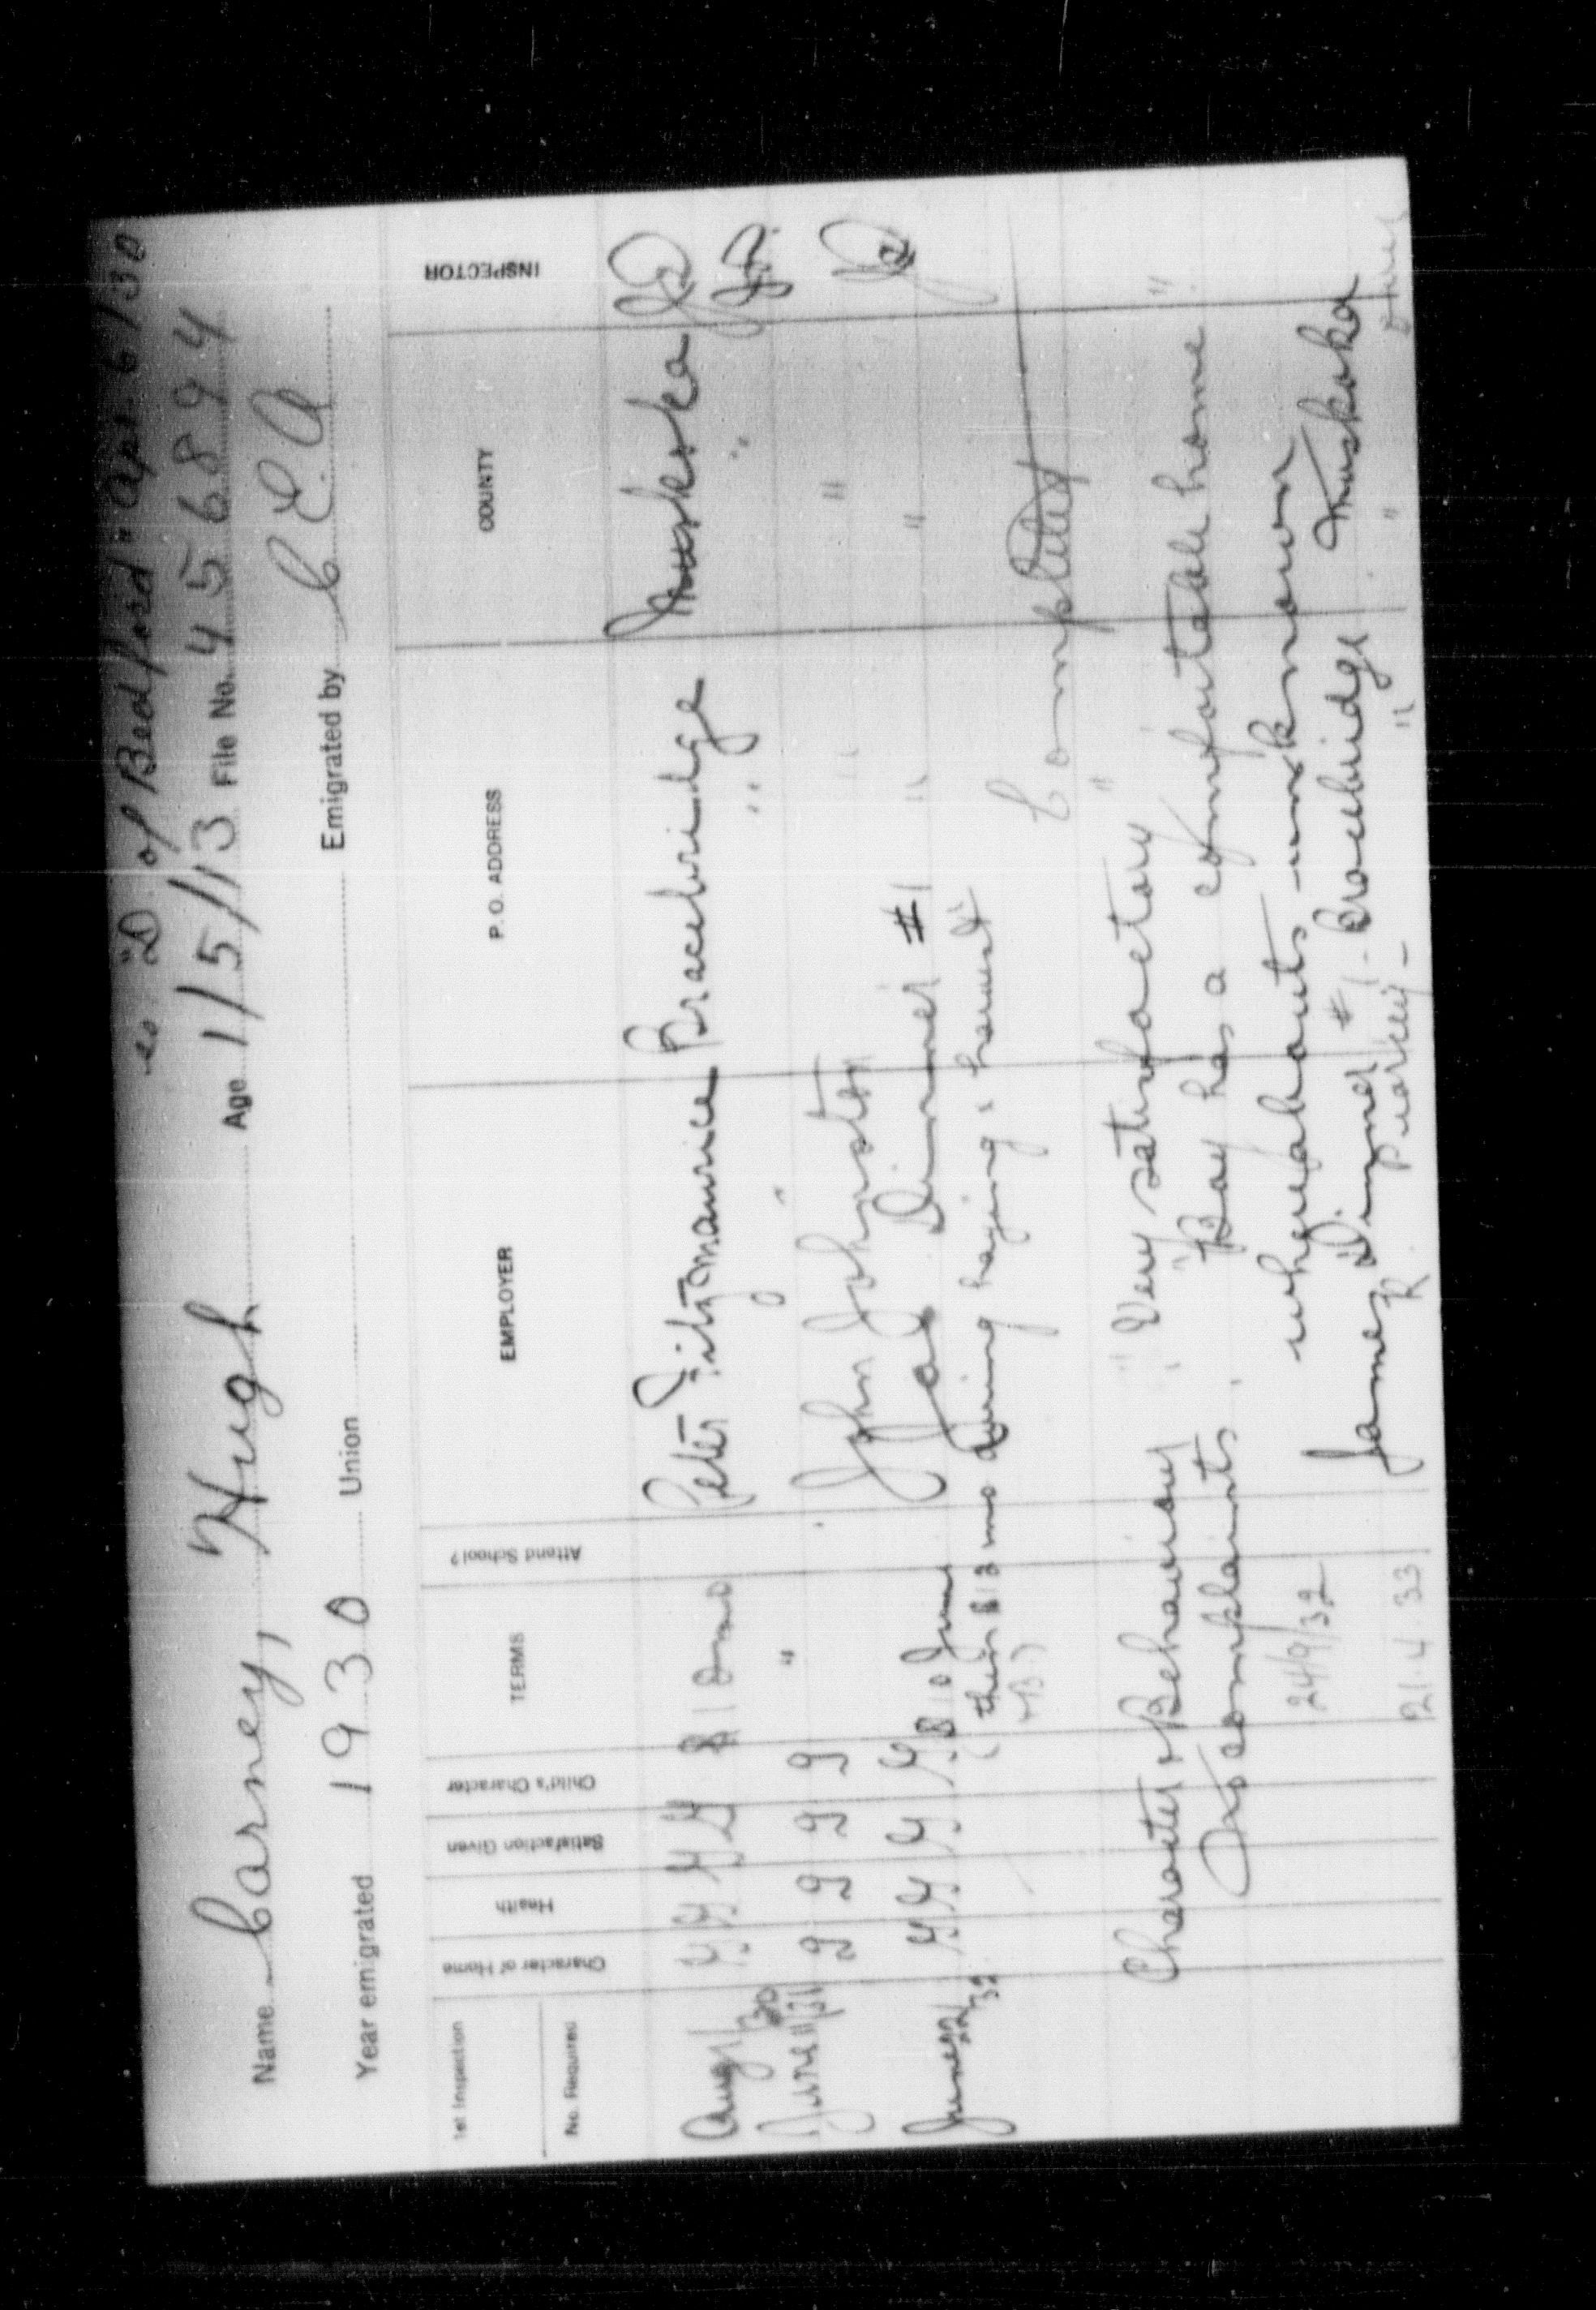 ss "D. of Bedford" Apr. 6/30
Name Carney, Hugh Age 1/5/13 File No. 456894
Year emigrated 1930 Union Emigrated by C.E.A
1st Inspection
No. Required
Character of Home
Health
Satisfaction Given
Child's Character
TERMS
Attend School?
EMPLOYER
P. O. ADDRESS
COUNTY
INSPECTOR
Aug 1/30 G G G G $10 mo Peter Fitzmaurice Bracebridge Muskoka
June 11/31 g g g g " " " "
John Johnston " "
June 22/32 G G G G $10 June Jas Dinner #1 " "
then $13 mo during haying & harvest
Completed
Character & Behaviour " Very satisfactory " "
No complaints. "Boy has a comfortable home "
24/9/32 whereabouts unknown
James Dinner #1 - Bracebridge Muskoka
21.4.33 R " "